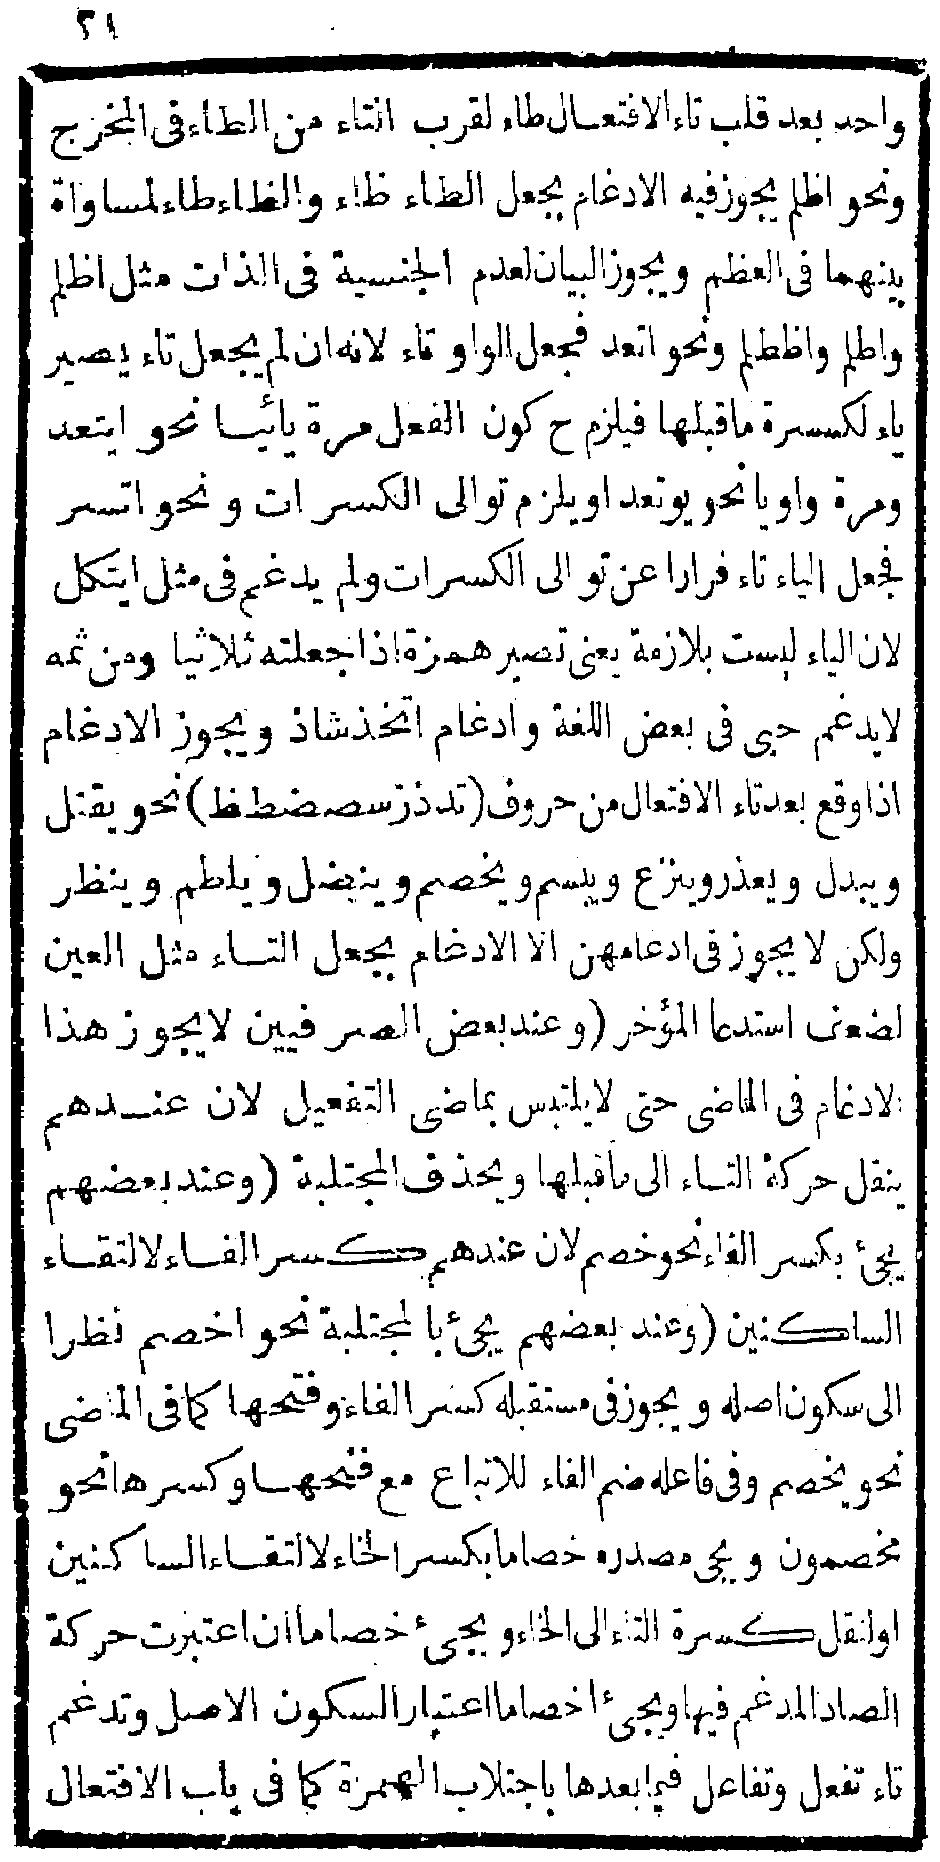 ٢١
واحد بعد قلب تاء الافتعال طاء لقرب التاء من الطاء فى المخرج
ونحو اظلم يجوز فيه الادغام بجعل الطاء ظاء والظاء طاء لمساواة
بينهما فى العظم ويجوز البيان لعدم الجنسية فى الذات مثل اظلم
واطلم واظطلم ونحو اتعد فجعل الواو تاء لانه ان لم يجعل تاء يصير
ياء لكسرة ما قبلها فيلزم ح كون الفعل مرة يائيا نحو ايتعد
ومرة واويا نحو يوتعد او يلزم توالى الكسرات ونحو اتسر
فجعل الياء تاء فرارا عن توالى الكسرات ولم يدغم فى مثل ايتكل
لان الياء ليست بلازمة يعنى تصير همزة اذا جعلته ثلاثيا ومن ثمه
لا يدغم حيى فى بعض اللغة وادغام اتخذ شاذ ويجوز الادغام
اذا وقع بعد تاء الافتعال من حروف (تدذزسصضطظ) نحو يقتل
ويبدل ويعذر وينزع ويبسم ويخصم وينضل ويلطم وينظر
ولكن لا يجوز فى ادغامهن الا الادغام بجعل التاء مثل العين
لضعف استدعا المؤخر (وعند بعض الصرفيين لا يجوز هذا
الادغام فى الماضى حتى لا يلتبس بماضى التفعيل لان عندهم
ينقل حركة التاء الى ما قبلها ويحذف المجتلبة (وعند بعضهم
يجئ بكسر الفاء نحو خصم لان عندهم كسر الفاء لالتقاء
الساكنين (وعند بعضهم يجئ بالمجتلبة نحو اخصم نظرا
الى سكون اصله ويجوز فى مستقبله كسر الفاء وفتحها كما فى الماضى
نحو يخصم وفى فاعله ضم الفاء للاتباع مع فتحها وكسرها نحو
مخصمون ويجى مصدره خصاما بكسر الخاء لالتقاء الساكنين
او لنقل كسرة التاء الى الخاء ويجئ خصاما ان اعتبرت حركة
الصاد المدغم فيها ويجئ اخصاما اعتبار السكون الاصل وتدغم
تاء تفعل وتفاعل فيما بعدها باجتلاب الهمزة كما فى باب الافتعال